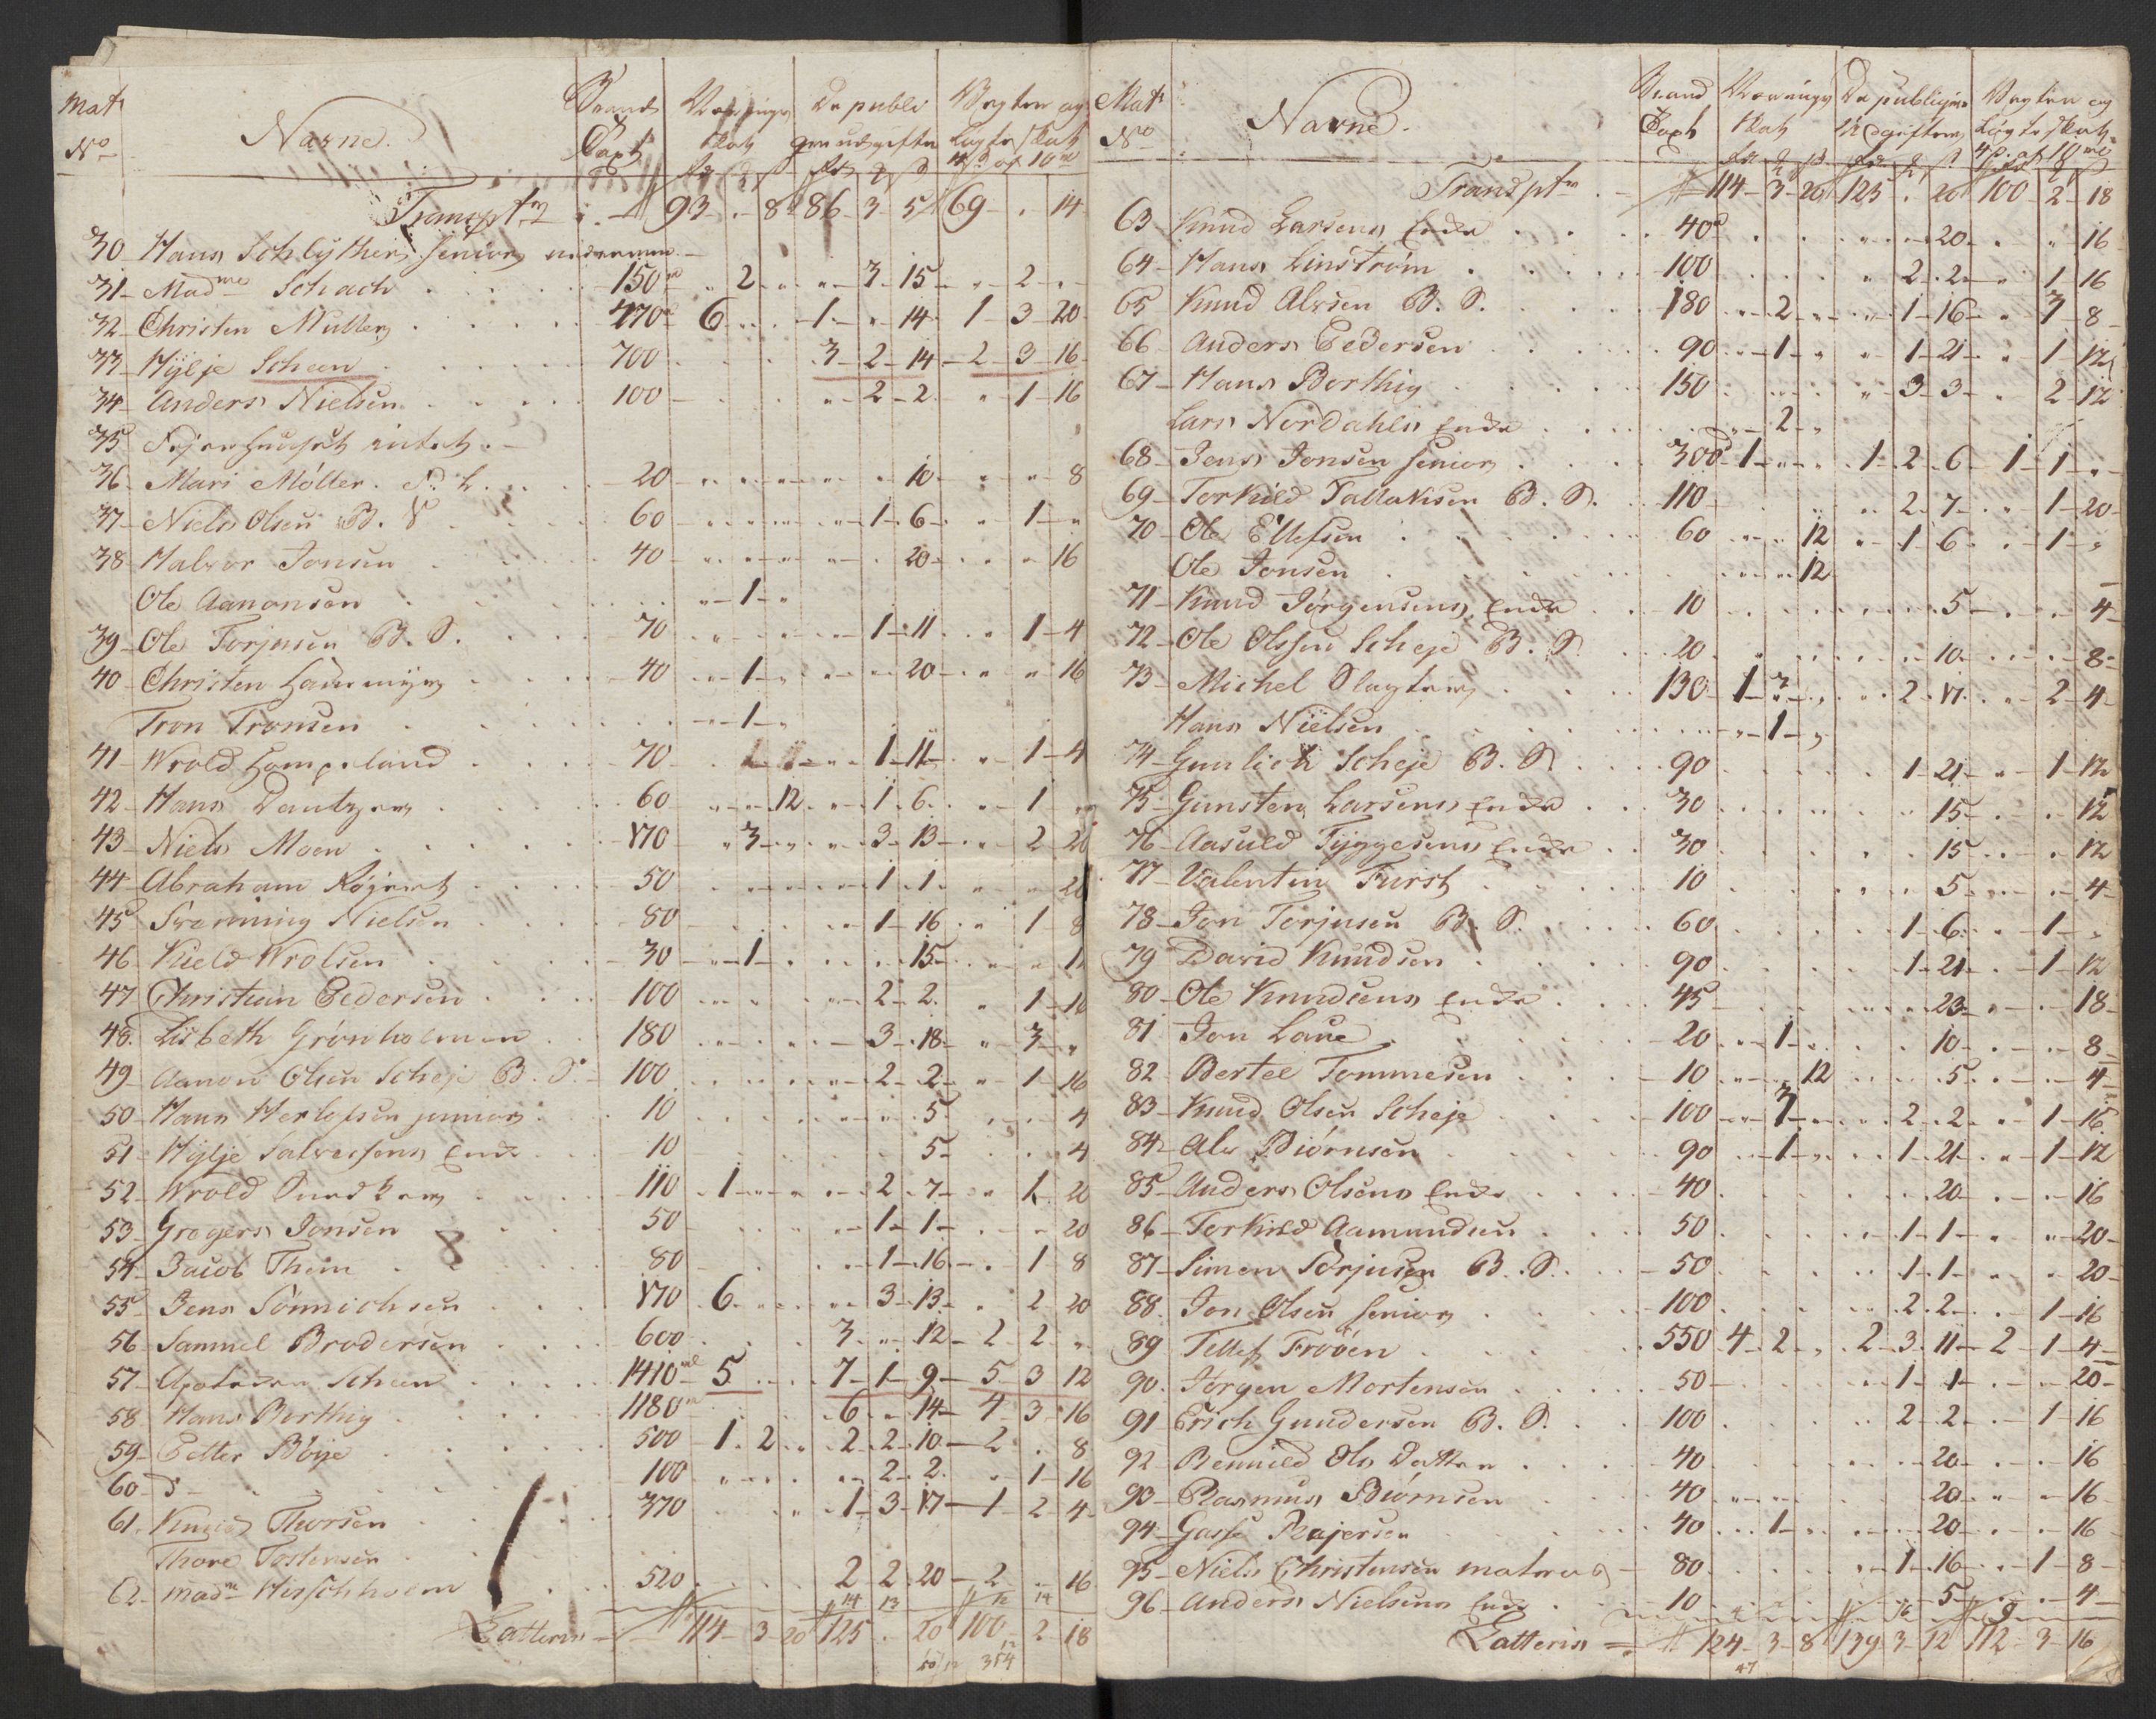 Matr No Navne. Brand Taxt Nærings Skat De publiqve udgifter Vægten og Løgte Skat 4 ß af 10 rd
Transpt 93 - " 8 86 - 3 - 5 69 - " 14
30 Hans Schlyther senior
31 Mad Schach 150 " 2 " " 3 15 " 2 "
32 Christen Muller 270 6 1 " 14 1 3 20
33 Hylje Scheen 700 3 2 14 2 3 16
34 Anders Nielsen 100 " 2 2 " 1 16
35 intet
36 Mari Møller 20 10 " " 8
37 Niels Olsen B. S 60 1 6 " 1 "
38 Halvor Jonsen 40 20 " " 16
Ole Aanonsen " 1 "
39 Ole Torjusen B. S. 70 1 11 " 1 4
40 Christen 40 " 1 " " " 20 " " 16
Tron Tronsen " 1 "
41 Wrold 70 1 11 " 1 4
42 Hans 60 " " 12 " 1 6 " 1 "
43 Niels Moen 170 " 3 " " 3 13 " 2 20
44 Abraham 50 " 1 1 " " 20
45 Nielsen 80 " 1 16 " 1 8
46 Kield Wrolsen 30 " 1 " " " 15 " " 12
47 Christian Pedersen 100 " 2 2 " 1 16
48 Lisbeth Grønholmen 180 " 3 18 " 3 "
49 Aanon Olsen Scheje B. S. 100 " 2 2 " 1 16
50 Hans Herlofsen junior 10 5 " " 4
51 Hylje Salvesens Enke 10 5 " " 4
52 Wrold 110 1 " " " 2 7 " 1 20
53 Gregers Jonsen 50 " 1 1 " " 20
54 Jacob Thim 80 " 1 16 " 1 8
55 Jens Sønnichsen 170 6 " " " 3 13 " 2 20
56 Samuel Brodersen 600 3 " 12 2 2 "
57 Scheen 1410 5 7 1 9 5 3 12
58 Hans Berthig 1180 6 " 14 4 3 16
59 Petter Bøye 500 1 2 " 2 2 10 2 " 8
60 D 100 " 2 2 " 1 16
61 Knud Thorsen 370 1 3 17 1 2 4
Thore Tostensen
62 Mad Hirschholm 520 2 2 20 2 " 16
Latteris 114 - 3 - 20 125 " 20 100 - 2 - 18
Matr No Navne. Brand Taxt Nærings Skat De publiqve udgifter Vægten og Løgte Skat 4 ß af 10 rd
Transpt 114 - 3 - 20 125 " 20 100 2 18
63 Knud Larsens Enke 40 20 " " 16
64 Hans Linstrøm 100 " 2 2 " 1 16
65 Knud Alvsen B. S. 180 " 2 " " 1 16 " 3 8
66 Anders Pedersen 90 " 1 " " 1 21 " 1 12
67 Hans Berthig 150 " 3 3 " 2 12
Lars Nordahls Enke " 2 "
68 Jens Jonsen senior 300 1 " " 1 2 6 1 1 "
69 Torkild Tallaksen B. S. 110 " 2 7 " 1 20
70 Ole Ellefsen 60 " " 12 " 1 6 " 1 "
Ole Jonsen " " 12
71 Knud Jørgensens Enke 10 5 " " 4
72 Ole Olssen Scheje B. S. 20 10 " " 8
73 Michel Slagter 130 1 " 2 17 " 2 4
Hans Nielsen " 1 "
74 Gunlich Scheje B. S. 90 1 21 " 1 12
75 Gunsten Larsens Enke 30 15 " " 12
76 Aasuld Tyggesens Enke 30 15 " " 12
77 Valentin Furst 10 5 " " 4
78 Jon Torjusen B. S. 60 1 6 " 1 "
79 David Knudsen 90 1 21 " 1 12
80 Ole Knudsens Enke 45 23 " " 18
81 Jon Laue 20 " 1 " 10 " " 8
82 Bertel Tommesen 10 " " 12 5 " " 4
83 Knud Olsen Scheje 100 2 2 " 1 16
84 Alv Biørnsen 90 " 1 " " 1 21 " 1 12
85 Anders Olsens Enke 40 20 " " 16
86 Torkild Aamundsen 50 1 1 " " 20
87 Simen Torjusen B. S. 50 1 1 " " 20
88 Jon Olsen senior 100 2 2 " 1 16
89 Tellef Frøøen 550 4 2 " 2 3 11 2 1 4
90 Jørgen Mortensen 50 1 1 " " 20
91 Erich Gundersen B. S. 100 2 2 " 1 16
92 Bennild Ols Datter 40 20 " " 16
93 Rasmus Biørnsen 40 20 " " 16
94 Gasse Reajersen 40 " 1 " 20 " " 16
95 Niels Christensen matros 80 " 1 16 " 1 8
96 Anders Nielsens Enke 10 5 " " 4
Latteris 124 - 3 - 8 139 3 - 12 112 - 3 - 16